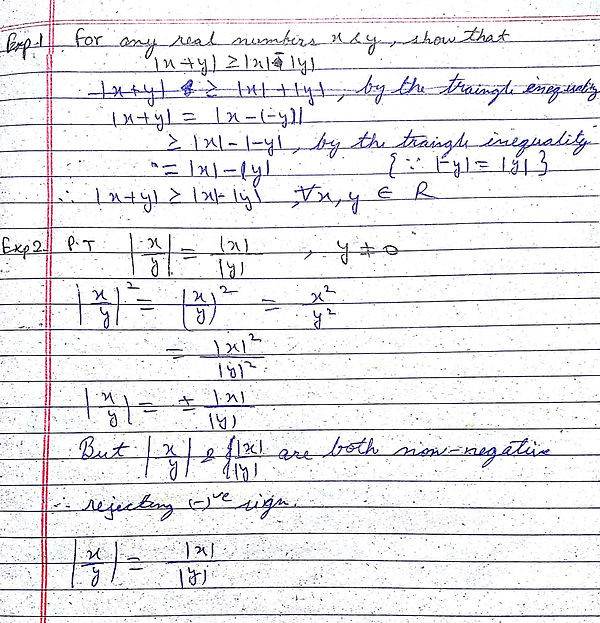 Exp-1 For any real numbers x & y, show that
|x+y| ≥ |x| - |y|
|x+y| ≥ |x| + |y|, by the traingle ineqality
|x+y| = |x-(-y)|
≥ |x| - |-y|, by the traingle inequality
= |x| - |y| {∵ |-y| = |y|}
∴ |x+y| ≥ |x| - |y| ∀x, y ∈ R
Exp 2. P.T |x/y| = |x|/|y| , y ≠ 0
|x/y|² = (x/y)² = x²/y²
= |x|²/|y|²
|x/y| = ± |x|/|y|
But |x/y| & |x|/|y| are both non-negative
∴ rejecting (-)ve sign.
|x/y| = |x|/|y|